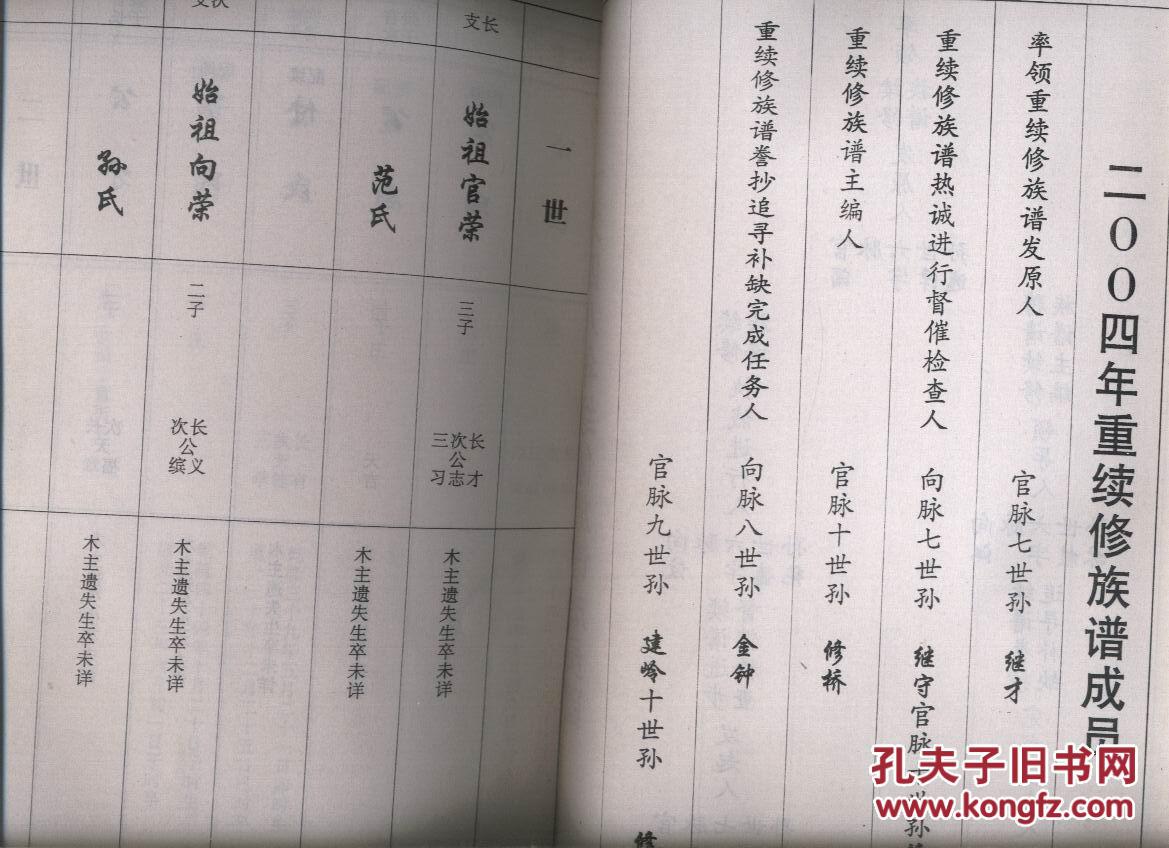 二00四年重续修族谱成员
率领重续修族谱发原人 官脉七世孙 继才
重续修族谱热诚进行督催检查人 向脉七世孙 继守官脉十世孙
重续修族谱主编人 官脉十世孙 修桥
重续修族谱誊抄追寻补缺完成任务人 向脉八世孙 金钟
官脉九世孙 建岭十世孙 修
一世
支长
始祖官荣 三子 长才 次公志 三习 木主遗失生卒未详
范氏 木主遗失生卒未详
支次
始祖向荣 二子 长义 次公缤 木主遗失生卒未详
孙氏 木主遗失生卒未详
孔夫子旧书网
www.kongfz.com